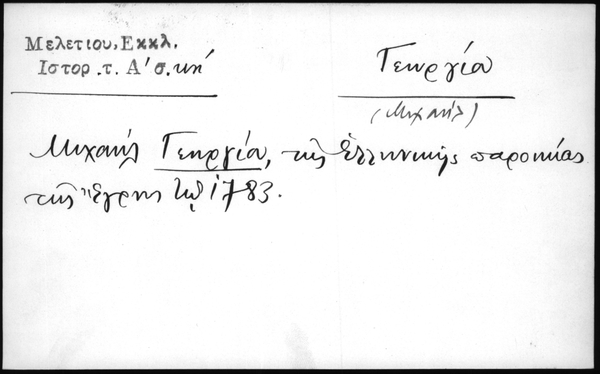 Μελετιου, Εκκλ.
Ιστορ. τ. Α' σ. κή
Γεωργία
(Μιχαήλ)
Μιχαήλ Γεωργία, τῆς ἑλληνικῆς παροικίας
τῆς Ἔγρης τῷ 1783.